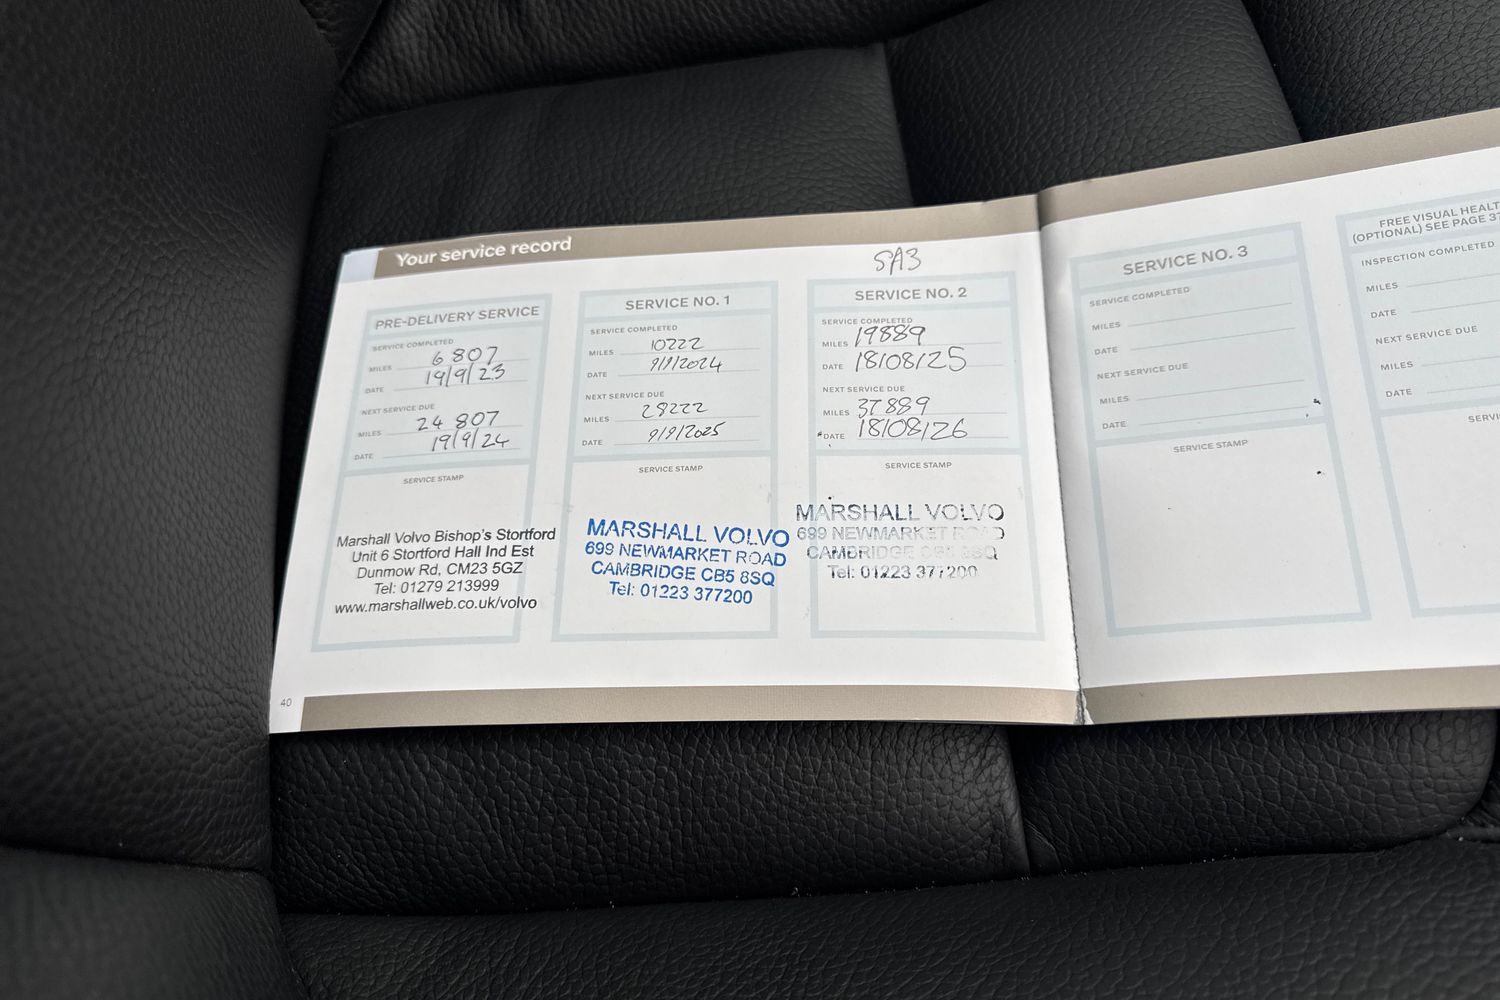 Your service record
PRE-DELIVERY SERVICE
SERVICE COMPLETED
MILES 6 807
DATE 19/9/23
NEXT SERVICE DUE
MILES 24 807
DATE 19/9/24
SERVICE STAMP
Marshall Volvo Bishop's Stortford
Unit 6 Stortford Hall Ind Est
Dunmow Rd, CM23 5GZ
Tel: 01279 213999
www.marshallweb.co.uk/volvo
40
SERVICE NO. 1
SERVICE COMPLETED
MILES 10222
DATE 9/9/2024
NEXT SERVICE DUE
MILES 28222
DATE 9/9/2025
SERVICE STAMP
MARSHALL VOLVO
699 NEWMARKET ROAD
CAMBRIDGE CB5 8SQ
Tel: 01223 377200
SA3
SERVICE NO. 2
SERVICE COMPLETED
MILES 19889
DATE 18/08/25
NEXT SERVICE DUE
MILES 37889
DATE 18/08/26
SERVICE STAMP
MARSHALL VOLVO
699 NEWMARKET ROAD
CAMBRIDGE CB5 8SQ
Tel: 01223 377200
SERVICE NO. 3
SERVICE COMPLETED
MILES
DATE
NEXT SERVICE DUE
MILES
DATE
SERVICE STAMP
FREE VISUAL HEALT
(OPTIONAL) SEE PAGE 37
INSPECTION COMPLETED
MILES
DATE
NEXT SERVICE DUE
MILES
DATE
SERVI